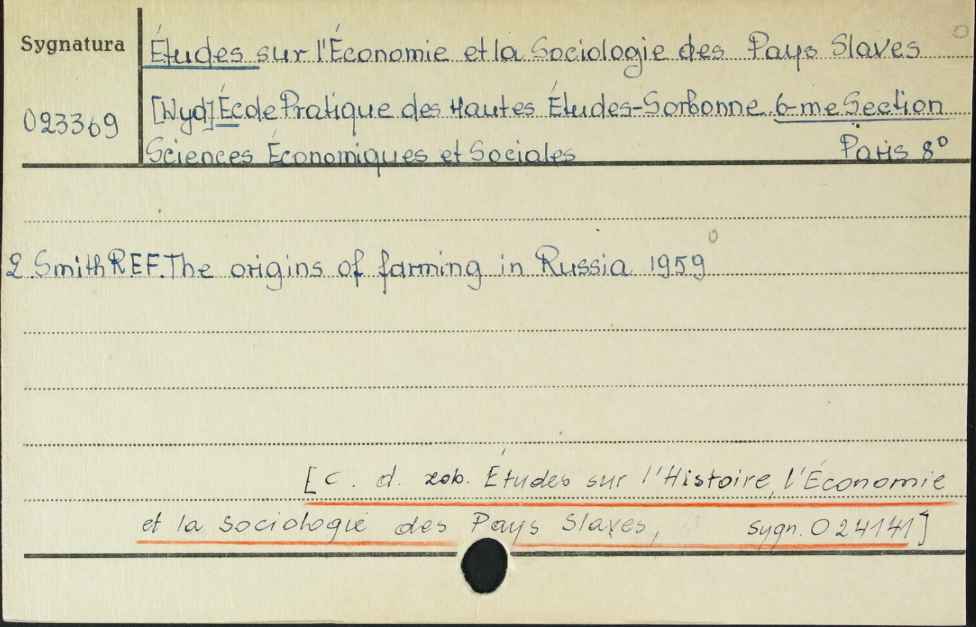 Sygnatura
023369
Études sur l'Économie et la Sociologie des Pays Slaves
[Wyd] École Pratique des Hautes Études-Sorbonne 6-me Section
Sciences Économiques et Sociales Paris 8°
2. Smith REF. The origins of farming in Russia 1959
[c. d. zob. Études sur l'Histoire, l'Économie
et la Sociologie des Pays Slaves, sygn. 024141]